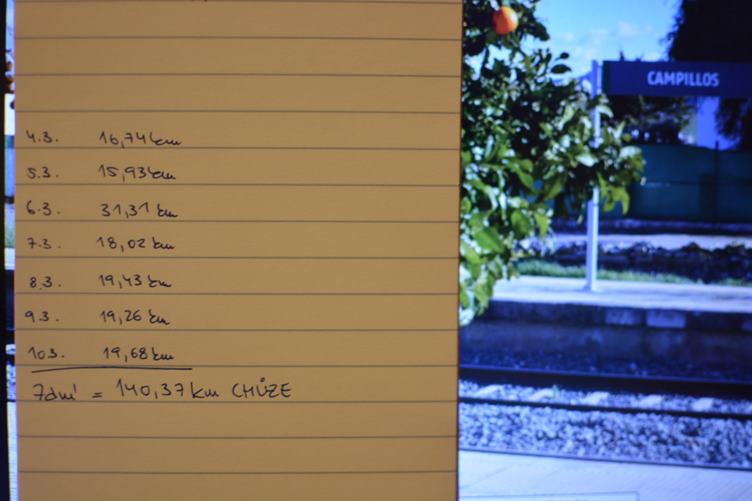 4.3. 16,74 km
5.3. 15,93 km
6.3. 31,31 km
7.3. 18,02 km
8.3. 19,43 km
9.3. 19,26 km
10.3. 19,68 km
7dní = 140,37 km CHŮZE
CAMPILLOS